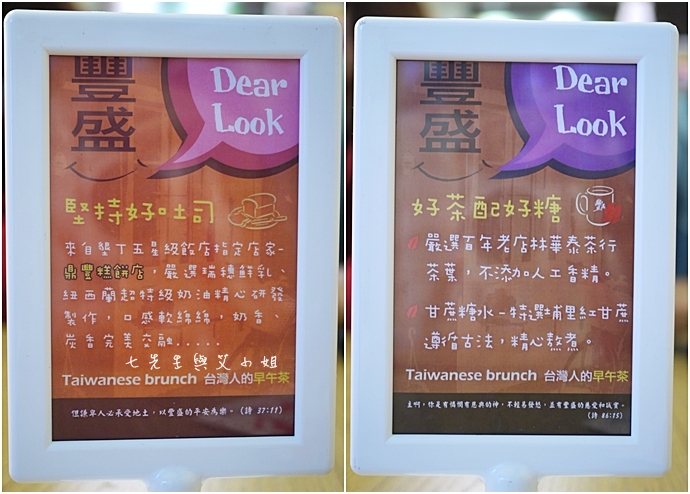 豐盛
Dear
Look
堅持好吐司
來自墾丁五星級飯店指定店家-
鼎豐糕餅店，嚴選瑞穗鮮乳、
紐西蘭超特級奶油精心研發
製作，口感軟綿綿，奶香、
炭香完美交融......
七先生與艾小姐
Taiwanese brunch 台灣人的早午茶
但謙卑人必承受地土，以豐盛的平安為樂。(詩 37:11)
豐盛
Dear
Look
好茶配好糖
嚴選百年老店林華泰茶行
茶葉，不添加人工香精。
甘蔗糖水-特選埔里紅甘蔗
遵循古法，精心熬煮。
Taiwanese brunch 台灣人的早午茶
主啊，你是有憐憫有恩典的神，不輕易發怒，並有豐盛的慈愛和誠實。
(詩 86:15)